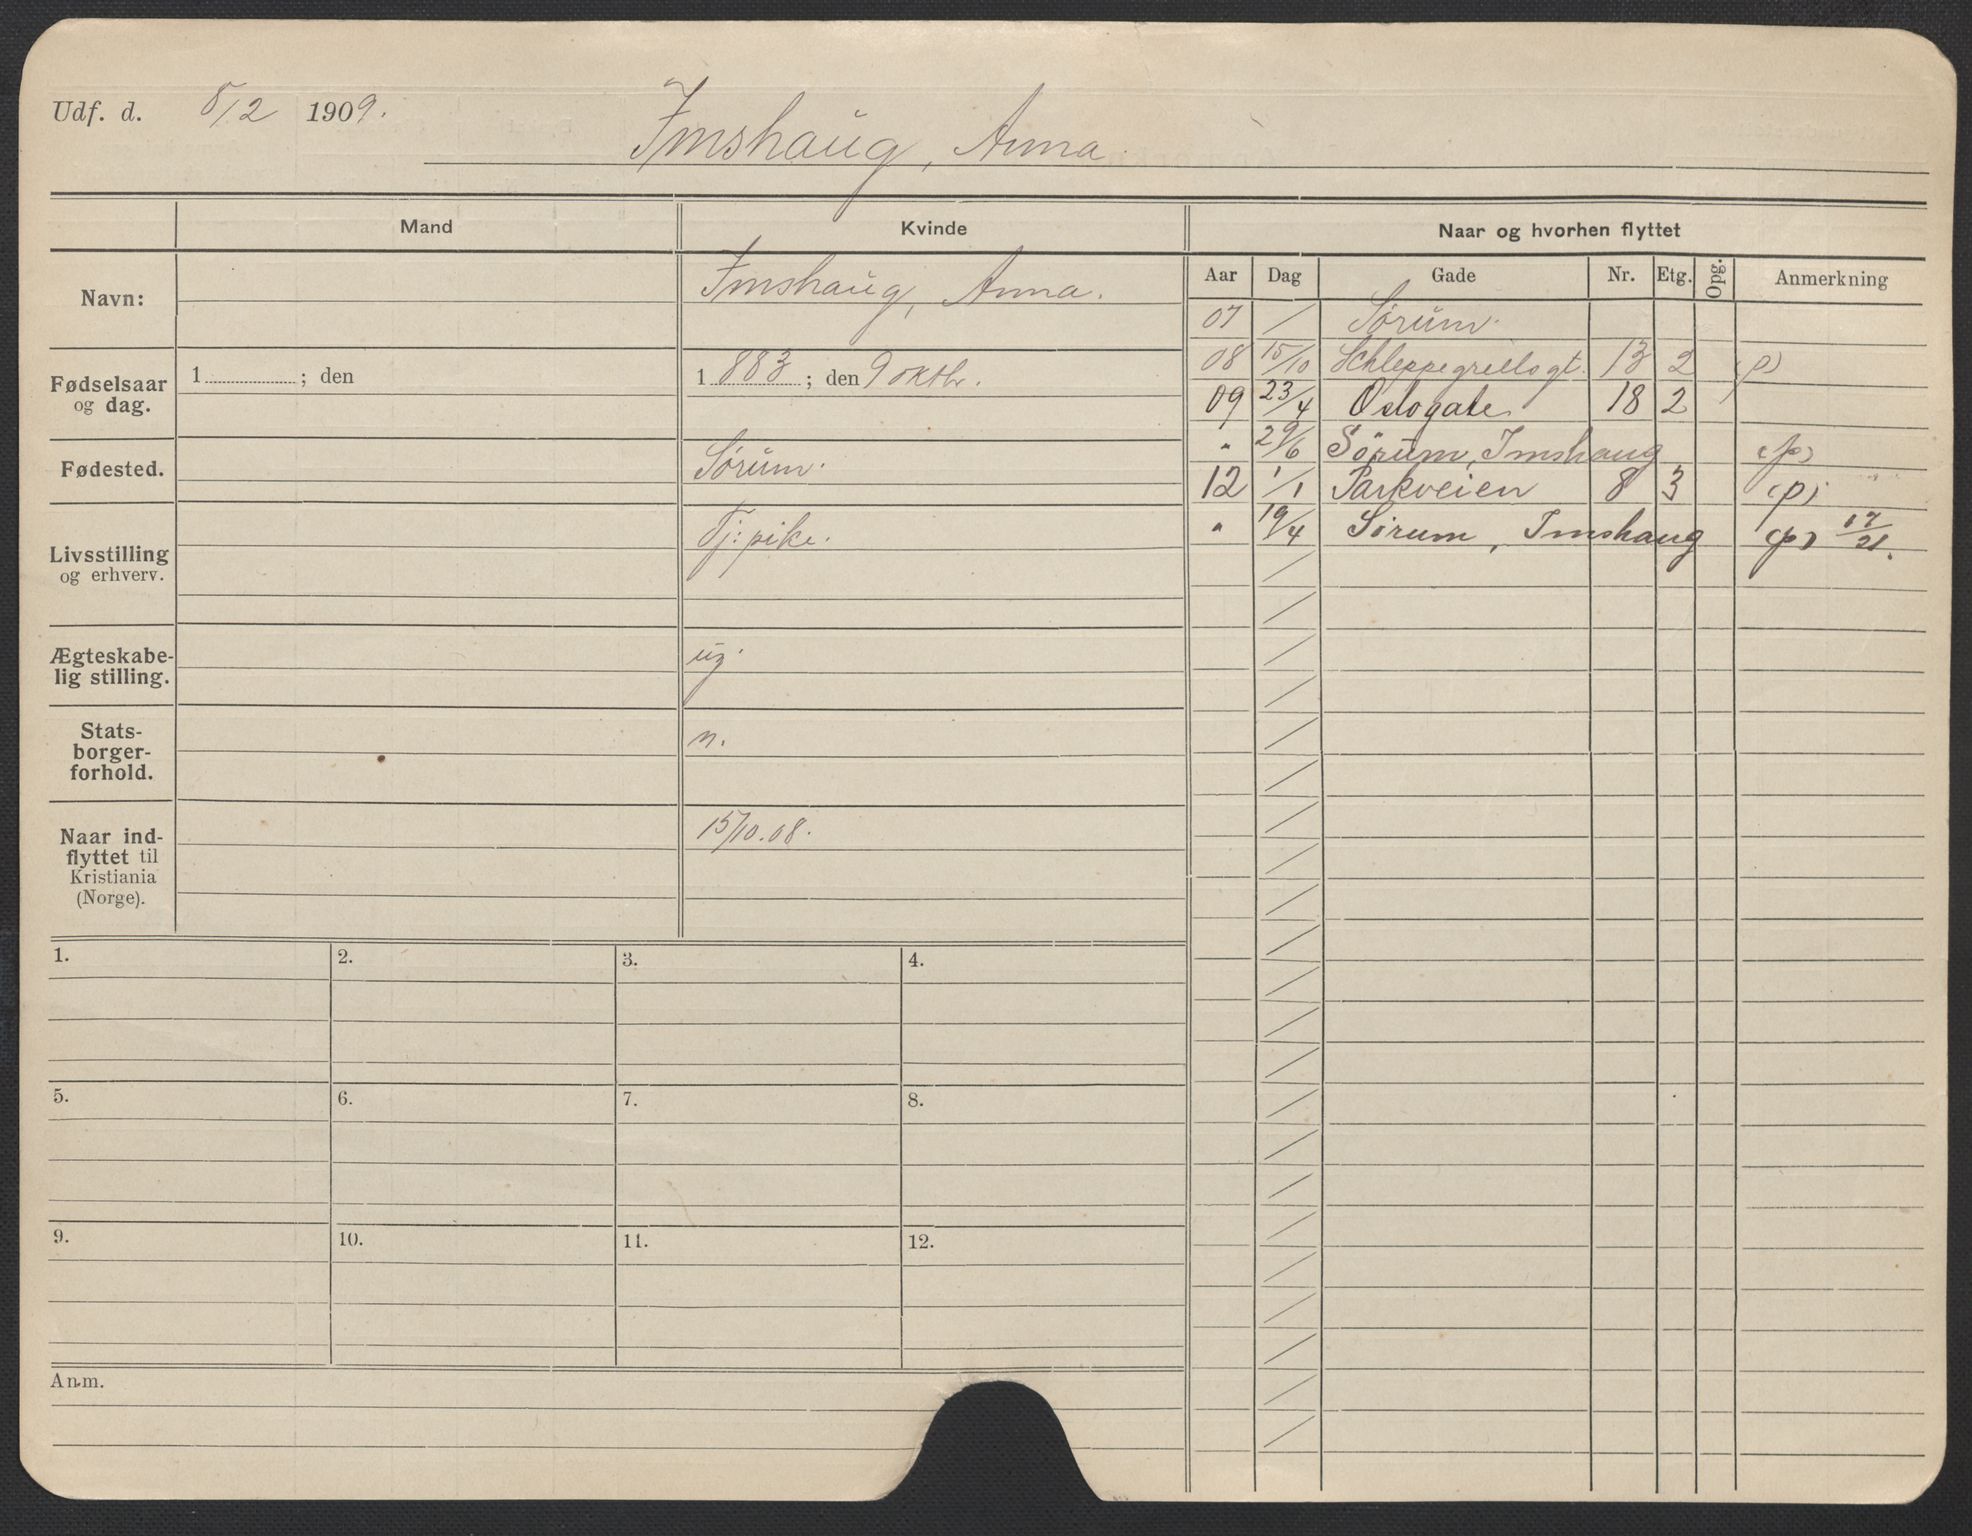 Udf. d. 5/2 1909.
Imshaug, Anna.
Mand
Kvinde
Naar og hvorhen flyttet
Navn:
Imshaug, Anna.
Fødselsaar og dag.
1 ; den
1 883 ; den 9 oktbr.
Fødested.
Sørum.
Livsstilling og erhverv.
Tj: pike.
Ægteskabe-
lig stilling.
ug.
Stats-
borger-
forhold.
n.
Naar ind-
flyttet til
Kristiania
(Norge).
15/10.08.
Aar Dag Gade Nr. Etg. Opg. Anmerkning
07 / Sørum.
08 15/10 Schleppegrellsgt. 13 2 (p)
09 23/4 Oslogate 18 2
" 29/6 Sörum, Imshaug (p)
12 1/1 Parkveien 8 3 (p)
" 19/4 Sørum, Imshaug (p) 17/21.
1. 2. 3. 4.
5. 6. 7. 8.
9. 10. 11. 12.
Anm.